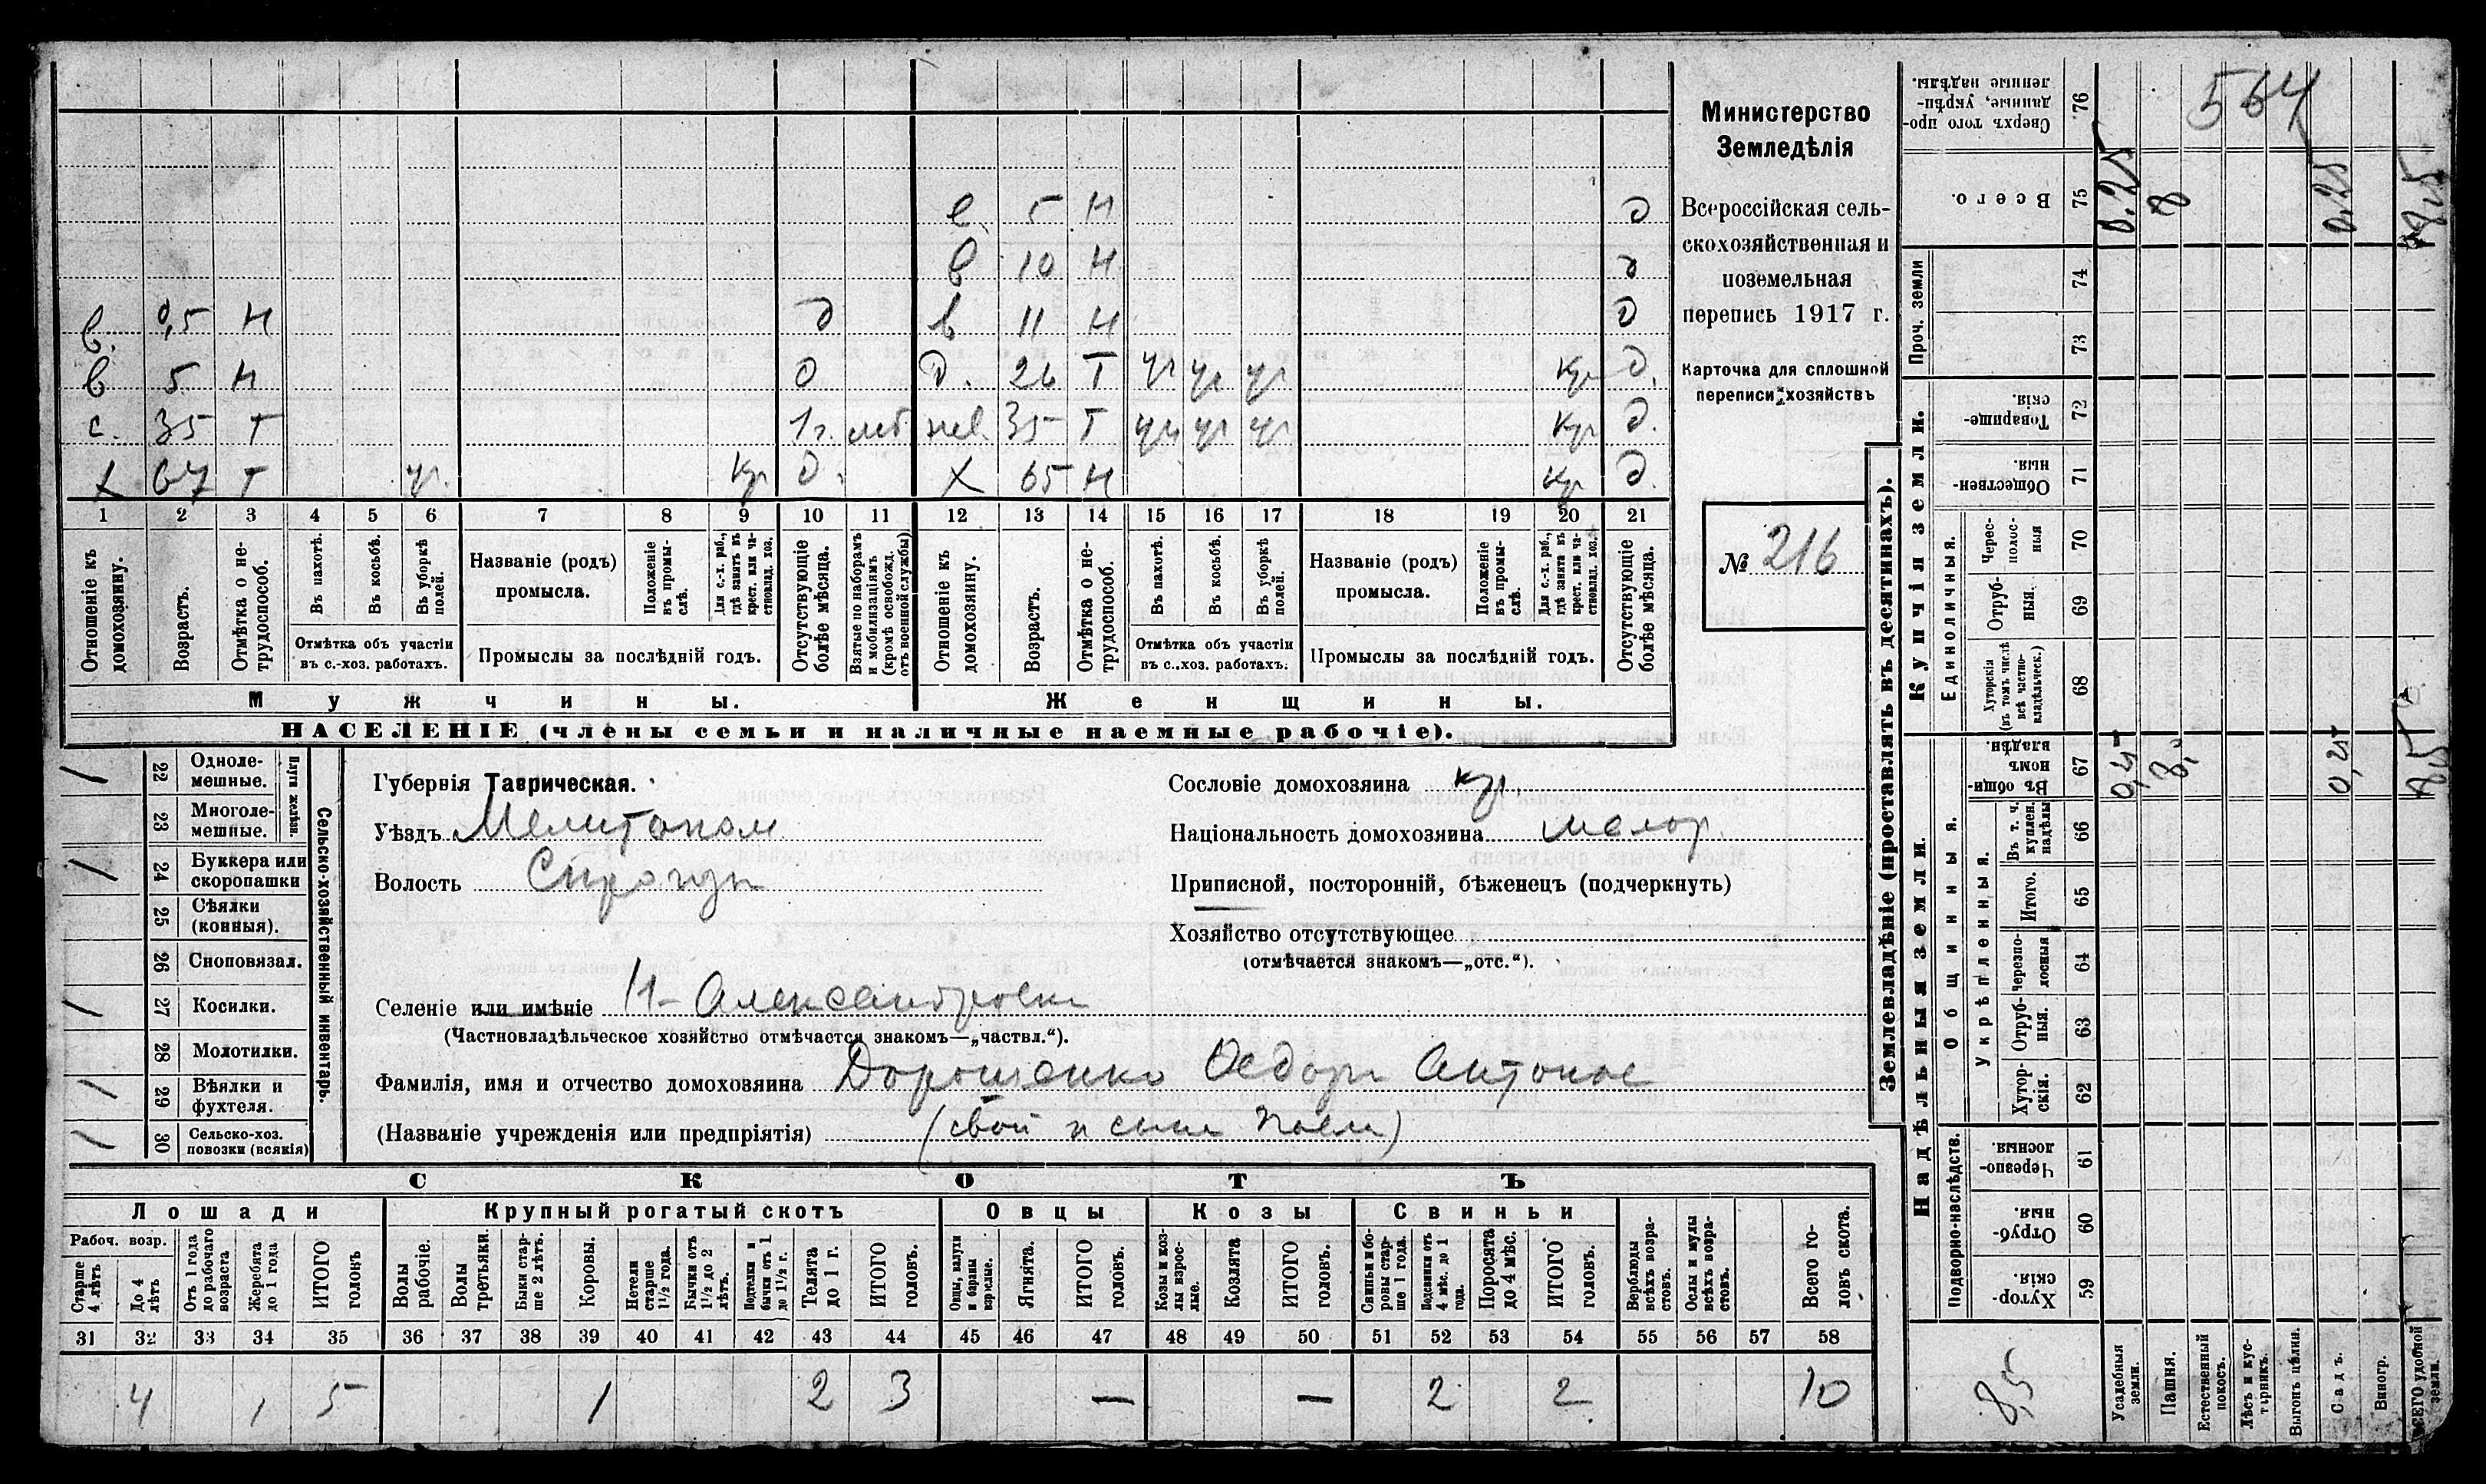 Министерство
Земледѣлія
Всероссійская сель-
скохозяйственная и
поземельная
перепись 1917 г.
Карточка для сплошной
переписи хозяйствъ
№ 216
564
е 5 н д
в 10 н д
в. 0,5 н д в 11 н д
в 5 н д д. 26 т уч уч уч кр д.
с. 35 т 1 г. моб нев. 35 т уч уч уч кр д.
х 67 т уч. кр д. х 65 н кр д.
1 2 3 4 5 6 7 8 9 10 11 12 13 14 15 16 17 18 19 20 21
Отношеніе къ домохозяину.
Возрастъ.
Отмѣтка о не-трудоспособ.
Въ пахотѣ.
Въ косьбѣ.
Въ уборкѣ полей.
Отмѣтка объ участіи
въ с.-хоз. работахъ.
Названіе (родъ)
промысла.
Положеніе въ промы-слѣ.
Для с.-х. раб., гдѣ занятъ въ крест. или ча-стновлад. хоз.
Промыслы за послѣдній годъ.
Отсутствующіе болѣе мѣсяца.
Взятые по наборамъ и мобилизаціямъ (кромѣ освобожд. отъ военной службы)
Отношеніе къ домохозяину.
Возрастъ.
Отмѣтка о не-трудоспособ.
Въ пахотѣ.
Въ косьбѣ.
Въ уборкѣ полей.
Отмѣтка объ участіи
въ с.-хоз. работахъ.
Названіе (родъ)
промысла.
Положеніе въ промы-слѣ.
Для с.-х. раб., гдѣ занятъ въ крест. или ча-стновлад. хоз.
Промыслы за послѣдній годъ.
Отсутствующіе болѣе мѣсяца.
Мужчины. Женщины.
НАСЕЛЕНІЕ (члены семьи и наличные наемные рабочіе).
Сельско-хозяйственный инвентарь.
Плуги желѣз.
/ 22 Одноле-мешные.
23 Многоле-мешные.
/ 24 Буккера или скоропашки
25 Сѣялки (конныя).
26 Сноповязал.
/ 27 Косилки.
28 Молотилки.
/ 29 Вѣялки и фухтеля.
/ 30 Сельско-хоз. повозки (всякія)
Губернія Таврическая.
Уѣздъ Мелитопол
Волость Сирогоз
Селеніе или имѣніе Н-Александровка
(Частновладѣльческое хозяйство отмѣчается знакомъ—„частвл.“).
Фамилія, имя и отчество домохозяина Дорошенко Федоръ Антонов
(Названіе учрежденія или предпріятія) (свой и сына
Сословіе домохозяина кр.
Національность домохозяина малор.
Приписной, посторонній, бѣженецъ (подчеркнуть)
Хозяйство отсутствующее
(отмѣчается знакомъ—„отс.“).
СКОТЪ
Лошади Крупный рогатый скотъ Овцы Козы Свиньи
Рабоч. возр.
Старше 4 лѣтъ
До 4 лѣтъ
Отъ 1 года до рабочаго возраста
Жеребята до 1 года
ИТОГО головъ
Волы рабочіе.
Волы третьяки.
Быки стар-ше 2 лѣтъ.
Коровы.
Нетели старше 1½ года.
Бычки отъ 1½ до 2 лѣтъ.
Подтелки и бычки отъ 1 до 1½ г.
Телята до 1 г.
ИТОГО головъ.
Овцы, валухи и бараны взрослые.
Ягнята.
ИТОГО головъ.
Козы и коз-лы взрос-лые.
Козлята
ИТОГО головъ.
Свиньи и бо-ровы стар-ше 1 года.
Подсвинки отъ 4 мѣс. до 1 года.
Поросята до 4 мѣс.
ИТОГО головъ.
Верблюды всѣхъ возра-стовъ.
Ослы и мулы всѣхъ возра-стовъ.
Всего го-ловъ скота.
31 32 33 34 35 36 37 38 39 40 41 42 43 44 45 46 47 48 49 50 51 52 53 54 55 56 57 58
4 1 5 1 2 3 — — 2 2 10
Землевладѣніе (проставлять въ десятинахъ).
Надѣльныя земли.
Подворно-наслѣдств.
Хутор-скія. 59
Отруб-ныя. 60
Черезпо-лосныя 61
Общинныя.
Укрѣпленныя.
Хутор-скія. 62
Отруб-ныя. 63
Черезпо-лосныя 64
Итого. 65
Въ т. ч. куплен. надѣлы 66
Въ общин-номъ владѣн. 67
Купчія земли.
Единоличныя.
Хуторскія (въ томъ числѣ всѣ частно-владѣльческ.) 68
Отруб-ныя. 69
Черес-полос-ныя 70
Обществен-ныя. 71
Товарище-скія. 72
Проч. земли
73
74
Всего. 75
Сверхъ того про-данные, укрѣп-ленные надѣлы. 76
Усадебныя земли. 0,25 0.25
Пашня. 8, 8
Естественный покосъ.
Лѣсъ и кус-тарникъ.
Выгонъ цѣлин.
Садъ. 0,25 0,25
Виногр.
ВСЕГО удобной земли. 8,5 8,5
8,5